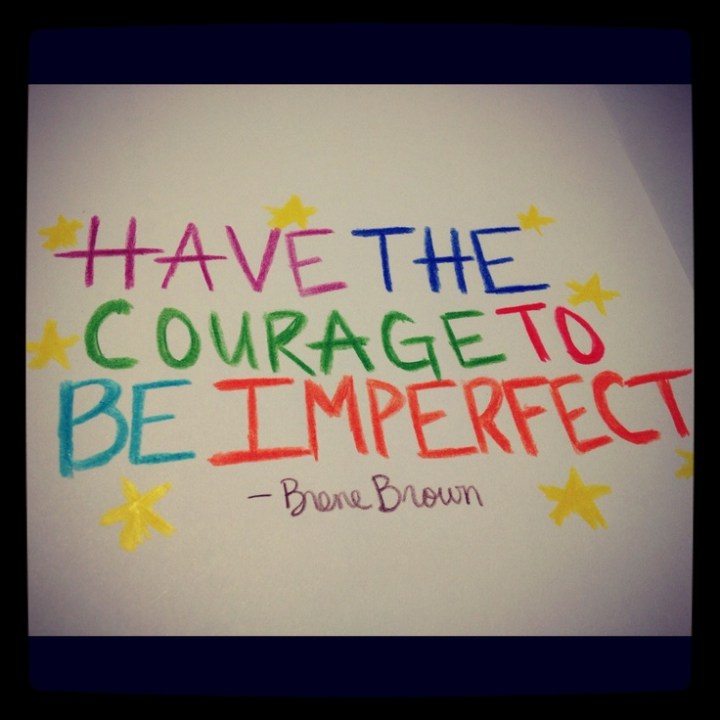 HAVE THE
COURAGE TO
BE IMPERFECT
- Brene Brown